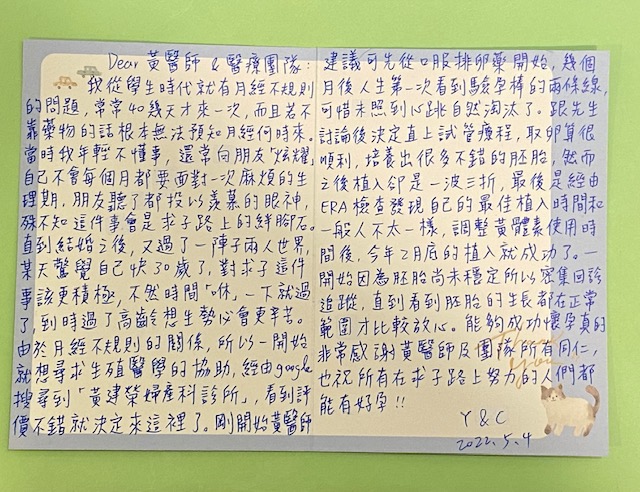 Dear 黃醫師 & 醫療團隊:
我從學生時代就有月經不規則
的問題，常常40幾天才來一次，而且若不
靠藥物的話根本無法預知月經何時來。
當時我年輕不懂事，還常向朋友「炫耀」
自己不會每個月都要面對一次麻煩的生
理期，朋友聽了都投以羨慕的眼神，
殊不知這件事會是求子路上的絆腳石。
直到結婚之後，又過了一陣子兩人世界，
某天驚覺自己快30歲了，對求子這件
事該更積極，不然時間「咻」一下就過
了，到時過了高齡想生勢必會更辛苦。
由於月經不規則的關係，所以一開始
就想尋求生殖醫學的協助，經由google
搜尋到「黃建榮婦產科診所」，看到評
價不錯就決定來這裡了。剛開始黃醫師
建議可先從口服排卵藥開始，幾個
月後人生第一次看到驗孕棒的兩條線，
可惜未照到心跳自然淘汰了。跟先生
討論後決定直上試管療程，取卵算很
順利，培養出很多不錯的胚胎，然而
之後植入卻是一波三折，最後是經由
ERA檢查發現自己的最佳植入時間和
一般人不太一樣，調整黃體素使用時
間後，今年2月底的植入就成功了。一
開始因為胚胎尚未穩定所以密集回診
追蹤，直到看到胚胎的生長都在正常
範圍才比較放心。能夠成功懷孕真的
非常感謝黃醫師及團隊所有同仁，
也祝所有在求子路上努力的人們都
能有好孕!!
Y & C
2022.5.4